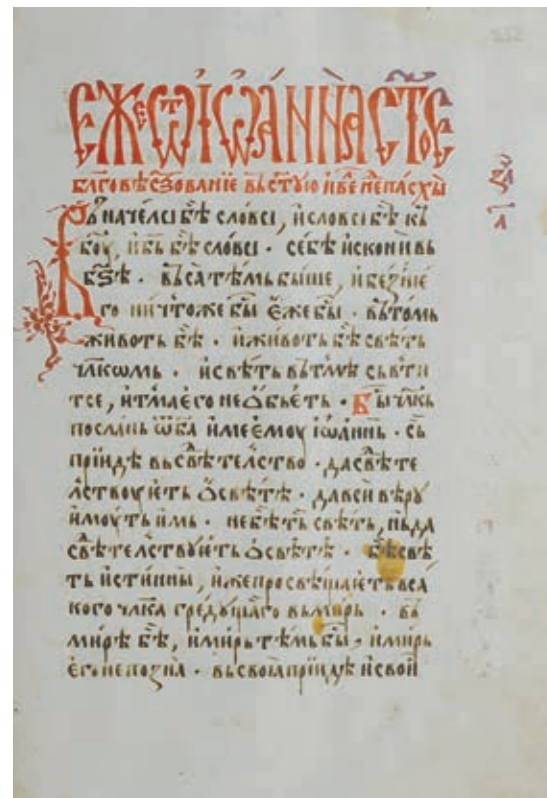 ЕЖЕ Ѿ ІѠА́ННА СТ҃ОЕ
БЛГОВѢСТВОВАНІЕ ВЬ СТ҃ꙊЮ И ВЕ НЕ ПАСХЫ
Въ начѐлѣ бѣ слово, и слово бѣ къ
боу, и бъ бѣ слово · се бѣ искони вь
ба · въса тѣмь быше, и без
го ничтоже бы е́же бы · въ томь
животь бѣ · и животь бѣ свѣть
чл҃кѡмь · и свѣть вь тмѣ свѣти
тсе, и тма его не ѻбьеть · Бы чл҃кь
послань ѿ ба име е́моу іѡаннь · сь
прїиде вь свѣтелство · да свѣте
лствоуіеть ѻ свѣтѣ · да вси вѣру
имоуть имь · не бѣ ть свѣть, нь да
свѣтелствуіеть ѻ свѣтѣ · бѣ свѣ
ть истинны, иже просвѣщаіеть вса
кого чл҃ка гредꙋщаго вь мирь · вь
мирѣ бѣ, и мирь тѣмь бы · и мирь
е́го не позна · вь своꙗ прїиде и свои